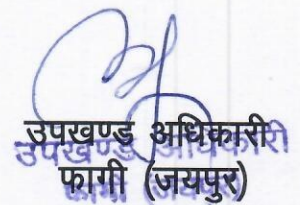 उपखण्ड अधिकारी
उपखण्ड अधिकारी
फागी (जयपुर)